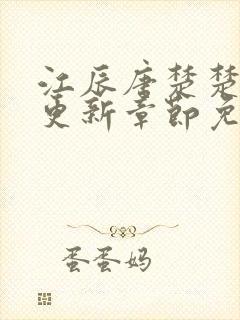 江辰唐楚楚
更新章节免
蛋蛋妈